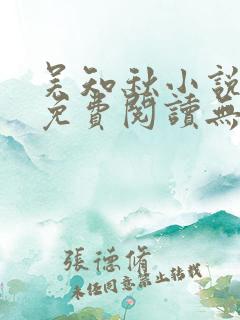 吴知秋小說
免費閱讀無
張德脩
未经同意禁止转载